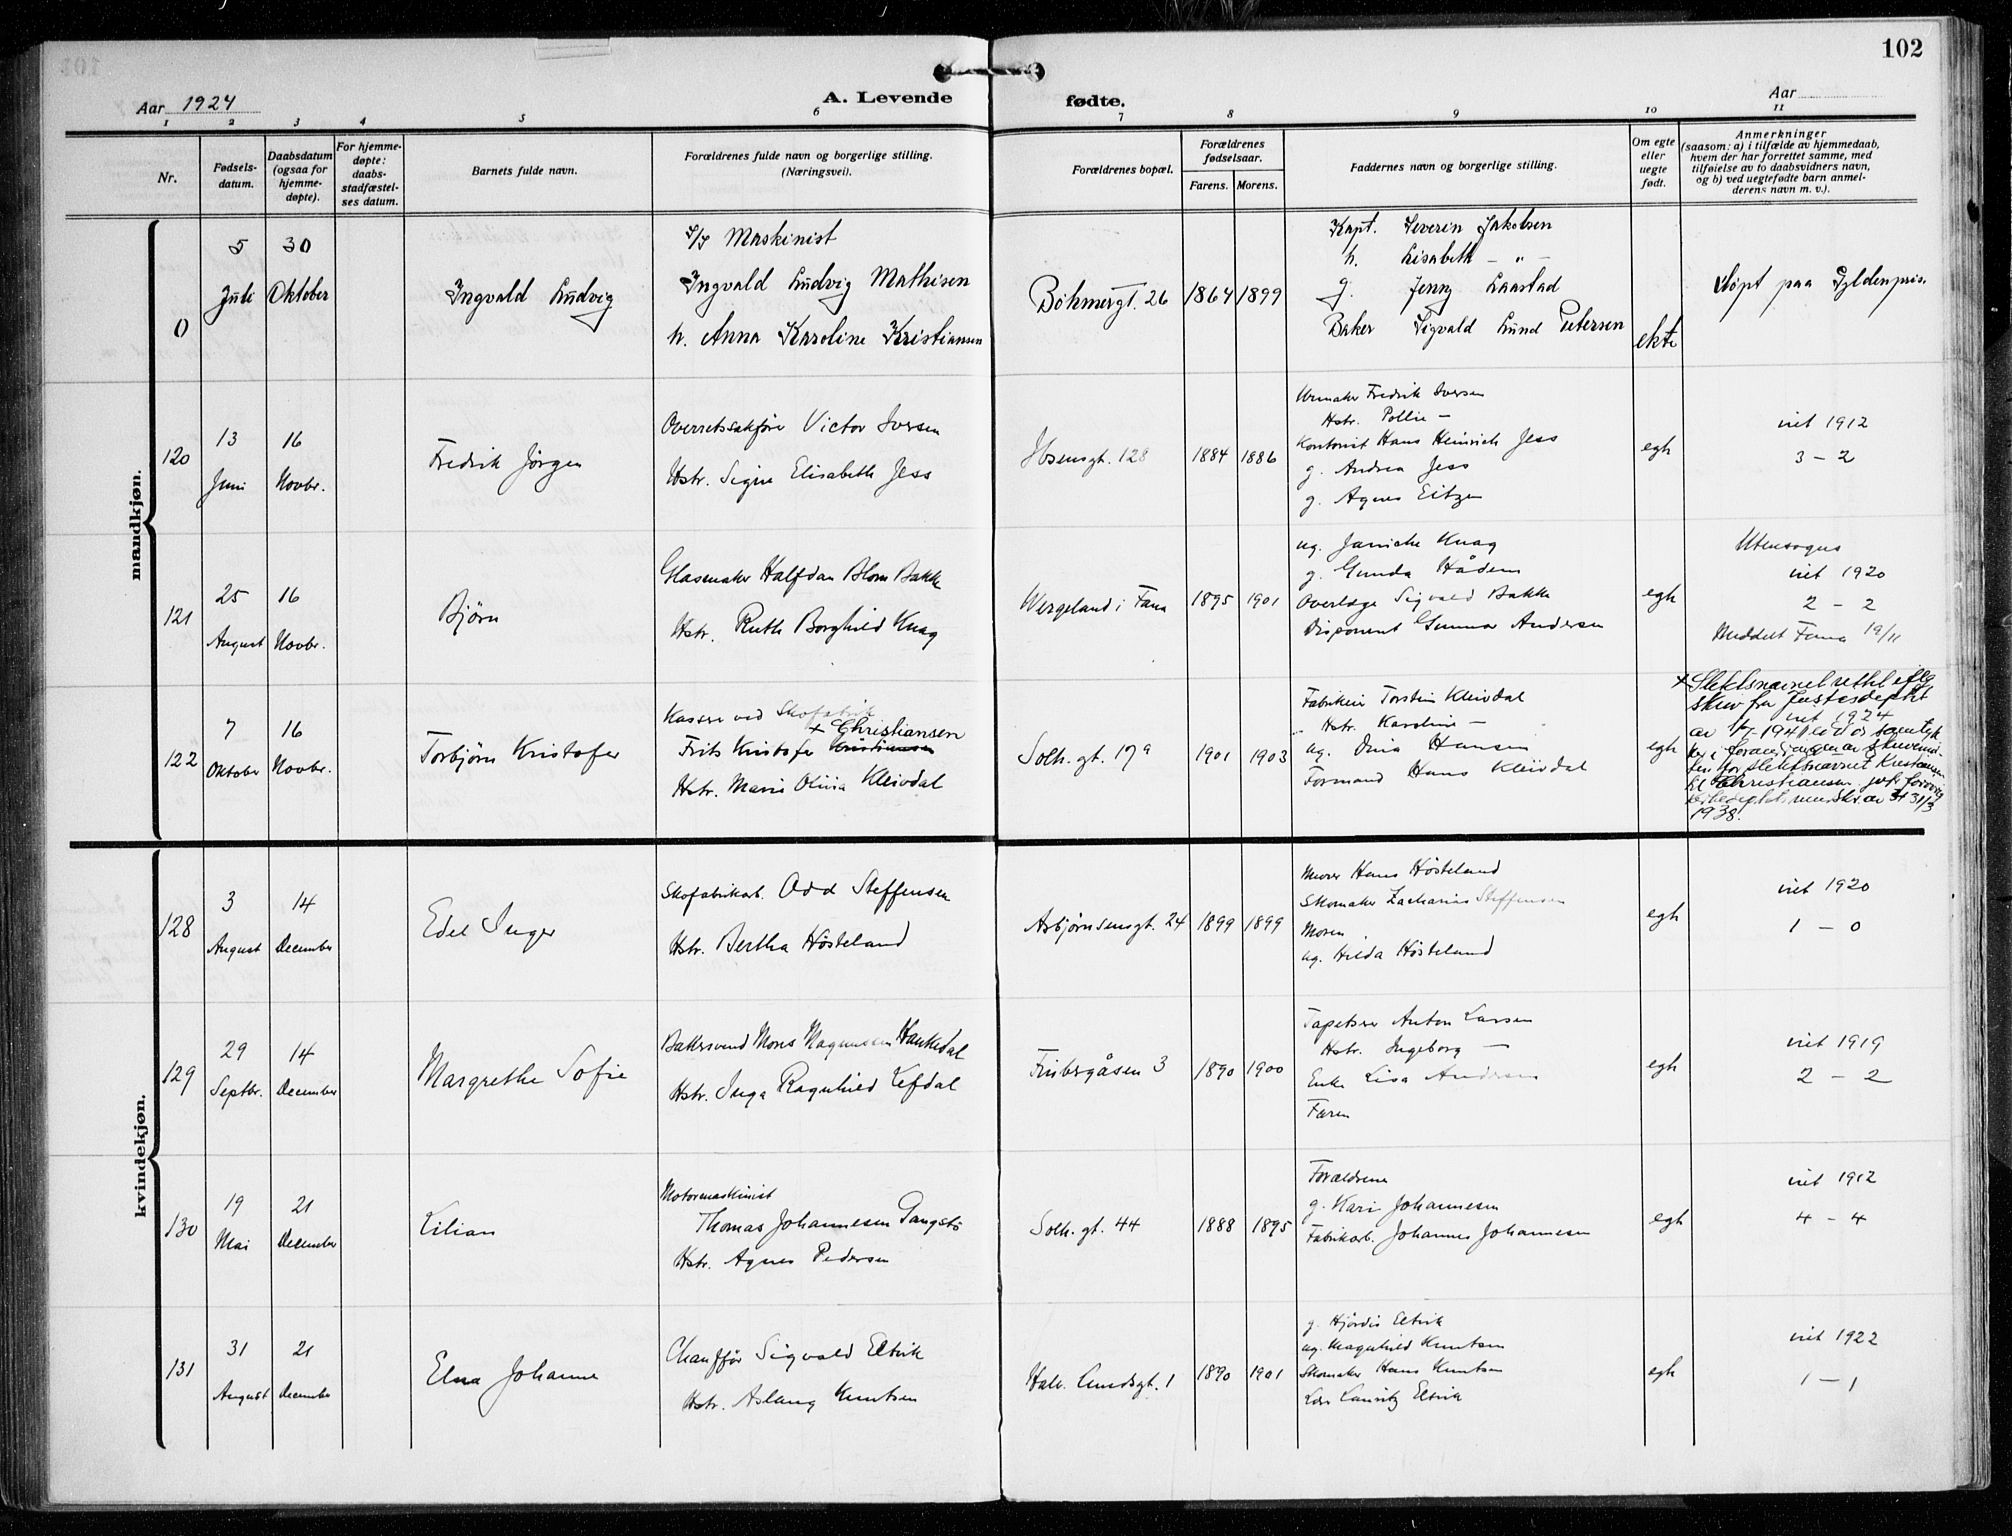 102
Aar 1924
A. Levende fødte.
Aar
1 2 3 4 5 6 7 8 9 10 11
Nr.
Fødsels-
datum.
Daabsdatum
(ogsaa for
hjemme-
døpte).
For hjemme-
døpte:
daabs-
stadfæstel-
ses datum.
Barnets fulde navn.
Forældrenes fulde navn og borgerlige stilling.
(Næringsvei).
Forældrenes bopæl.
Forældrenes
fødselsaar.
Farens. Morens.
Faddernes navn og borgerlige stilling.
Om egte
eller
uegte
født.
Anmerkninger
(saasom: a) i tilfælde av hjemmedaab,
hvem der har forrettet samme, med
tilføielse av to daabsvidners navn,
og b) ved uegtefødte barn anmel-
derens navn m. v.).
mandkjøn.
0
5
Juli
30
Oktober
Ingvald Ludvig
Maskinist
Ingvald Ludvig Mathisen
h. Anna Karoline Kristiansen
Böhmergt. 26
1864 1899
Kapt. Severin Jakobsen
h. Lisabeth - " -
g. Jenny Laastad
Baker Sigvald Lund Petersen
ekte
Døpt paa Gyldenpris.
120
13
Juni
16
Novbr.
Fredrik Jörgen
Overretssakfører Victor Iversen
Hstr. Signe Elisabeth Jess
Ibsensgt. 128
1884 1886
Urmaker Fredrik Iversen
Hstr. Pollie -
Kontorist Hans Heinrich Jess
g. Andrea Jess
g. Agnes Eitzen
egh
viet 1912
3 - 2
121
25
August
16
Novbr.
Björn
Glasmaker Halfdan Blom Bakke
Hstr. Ruth Borghild Knag
Wergeland i Fana
1895 1901
ug. Janiche Knag
g. Gunda Hådem
Overlæge Sigvald Bakke
Disponent Gunnar Andersen
egh
Utensogns
viet 1920
2 - 2
Meddelt Fana 19/11
122
7
Oktober
16
Novbr.
Torbjörn Kristofer
Kasserer ved Skofabrik
+ Christiansen
Frits Kristofer Kristiansen
Hstr. Marie Olivia Kleivdal
Solh. gt. 17a
1901 1903
Fabrikeier Torstein Kleivdal
Hstr. Karoline -
ug. Dina Hansen
Formand Hans Kleivdal
egh
+ Slektsnavnet rettet iflg.
skriv fra Justisdeptet
viet 1924
av 1/7-1941
slektsnavnet Kristiansen
til Christiansen, jvfr.
av 31/3
1938.
kvindekjøn.
128
3
August
14
December
Edel Inger
Skofabrikarb. Odd Steffensen
Hstr. Bertha Hösteland
Asbjørnsensgt. 24
1899 1899
Murer Hans Hösteland
Skomaker Zacharias Steffensen
Moren
ug. Hilda Hösteland
egh
viet 1920
1 - 0
129
29
Septbr.
14
December
Margrethe Sofie
Bakersvend Mons Magnussen Haukedal
Hstr. Inga Ragnhild Lefdal
Finbergåsen 3
1890 1900
Tapetserer Anton Larsen
Hstr. Ingeborg -
Enke Lisa Andersen
Faren
egh
viet 1919
2 - 2
130
19
Mai
21
December
Lilian
Motormaskinist
Thomas Johannesen Tangstö
Hstr. Agnes Pedersen
Solh. gt. 44
1888 1895
Forældrene
g. Kari Johannesen
Fabrikarb. Johannes Johannesen
egh
viet 1912
4 - 4
131
31
August
21
December
Elna Johanne
Chauffør Sigvald Eltvik
Hstr. Aslaug Knutsen
Halv. Lundsgt. 1
1890 1901
g. Hjördis Eltvik
ug. Magnhild Knutsen
Skomaker Hans Knutsen
Lauritz Eltvik
egh
viet 1922
1 - 1